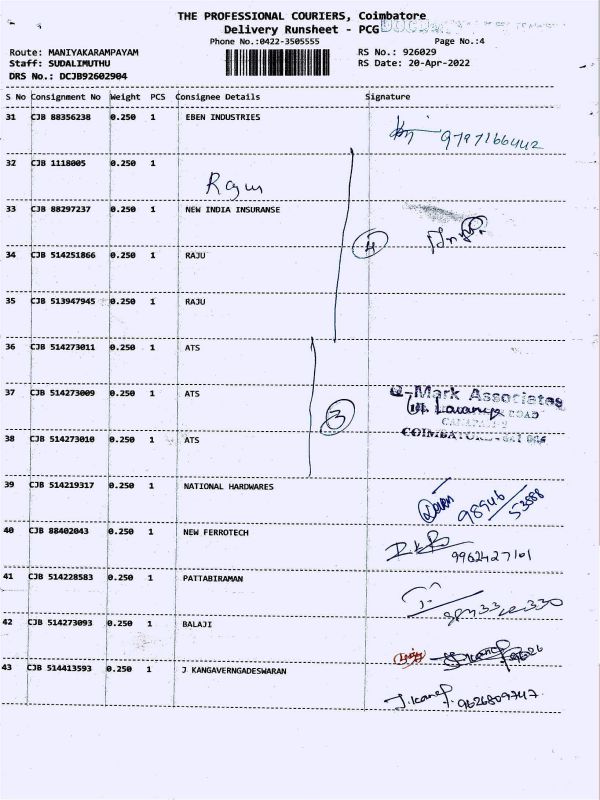 THE PROFESSIONAL COURIERS, Coimbatore
Delivery Runsheet - PCG
Phone No.:0422-3505555 Page No.:4
Route: MANIYAKARAMPAYAM RS No.: 926029
Staff: SUDALIMUTHU RS Date: 20-Apr-2022
DRS No.: DCJB92602904
S No Consignment No Weight PCS Consignee Details Signature
31 CJB 88356238 0.250 1 EBEN INDUSTRIES
9797166442
32 CJB 1118005 0.250 1
Raju
33 CJB 88297237 0.250 1 NEW INDIA INSURANSE
4
34 CJB 514251866 0.250 1 RAJU
35 CJB 513947945 0.250 1 RAJU
36 CJB 514273011 0.250 1 ATS
37 CJB 514273009 0.250 1 ATS
Q-Mark Associates
3 Lavanya ROAD
38 CJB 514273010 0.250 1 ATS
COIMBATORE
39 CJB 514219317 0.250 1 NATIONAL HARDWARES
98946 53888
40 CJB 88402043 0.250 1 NEW FERROTECH
9962427101
41 CJB 514228583 0.250 1 PATTABIRAMAN
42 CJB 514273093 0.250 1 BALAJI
43 CJB 514413593 0.250 1 J KANGAVERNGADESWARAN
9626809747